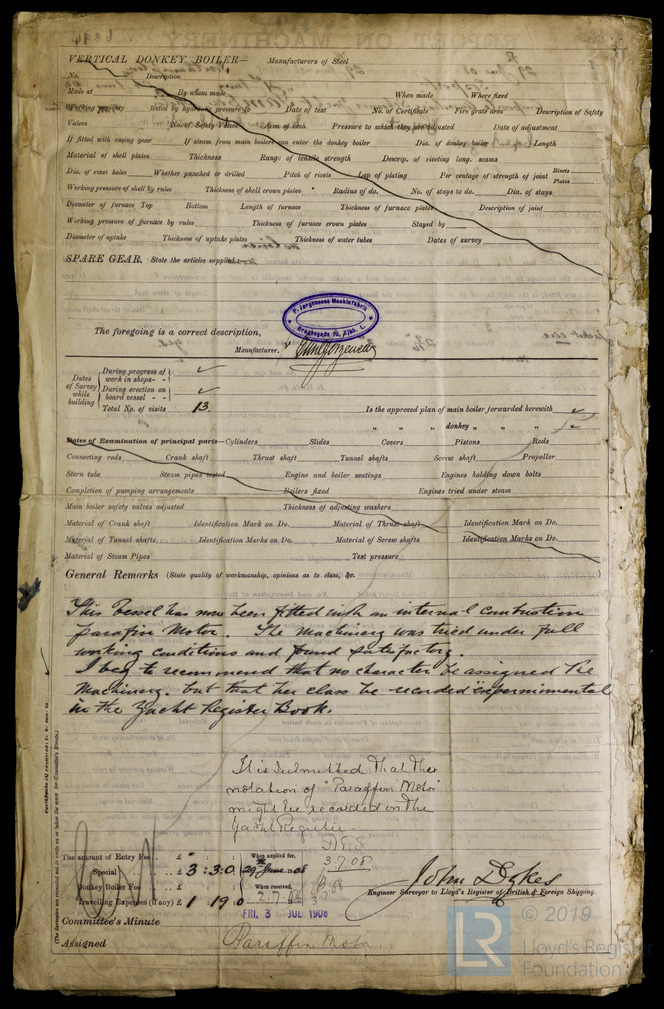 VERTICAL DONKEY BOILER— Manufacturers of Steel
No. Description
Made at By whom made When made Where fixed
Working pressure tested by hydraulic pressure to Date of test No. of Certificate Fire grate area Description of Safety
Valves No. of Safety Valves Area of each Pressure to which they are adjusted Date of adjustment
If fitted with easing gear If steam from main boilers can enter the donkey boiler Dia. of donkey boiler Length
Material of shell plates Thickness Range of tensile strength Descrip. of riveting long. seams
Dia. of rivet holes Whether punched or drilled Pitch of rivets Lap of plating Per centage of strength of joint Rivets Plates
Working pressure of shell by rules Thickness of shell crown plates Radius of do. No. of stays to do. Dia. of stays
Diameter of furnace Top Bottom Length of furnace Thickness of furnace plates Description of joint
Working pressure of furnace by rules Thickness of furnace crown plates Stayed by
Diameter of uptake Thickness of uptake plates Thickness of water tubes Dates of survey
SPARE GEAR. State the articles supplied:—
P. Jørgensens Maskinfabrik
The foregoing is a correct description,
Manufacturer.
Dates of Survey while building
During progress of work in shops - -
During erection on board vessel - - -
Total No. of visits 13.
Is the approved plan of main boiler forwarded herewith
" " " donkey " " "
Dates of Examination of principal parts—Cylinders Slides Covers Pistons Rods
Connecting rods Crank shaft Thrust shaft Tunnel shafts Screw shaft Propeller
Stern tube Steam pipes tested Engine and boiler seatings Engines holding down bolts
Completion of pumping arrangements Boilers fixed Engines tried under steam
Main boiler safety valves adjusted Thickness of adjusting washers
Material of Crank shaft Identification Mark on Do. Material of Thrust shaft Identification Mark on Do.
Material of Tunnel shafts Identification Marks on Do. Material of Screw shafts Identification Marks on Do.
Material of Steam Pipes Test pressure
General Remarks (State quality of workmanship, opinions as to class, &c.
This Vessel has now been fitted with an internal combustion
parafin Motor. The Machinery was tried under full
working conditions and found satisfactory.
I beg to recommend that no character be assigned the
Machinery. but that her class be recorded "experimental
in the Yacht Register Book.
It is submitted that the
notation of "Paraffin Motor"
might be recorded in the
Yacht Register.
3.7.08
The amount of Entry Fee . . £ : : When applied for,
Special . . £ 3 : 3 : 0 29 June 1908
Donkey Boiler Fee . . £ When received,
Travelling Expenses (if any) £ 1 : 19 : 0
John Dykes
Engineer Surveyor to Lloyd's Register of British & Foreign Shipping.
FRI. 3 JUL 1908
Committee's Minute
Assigned Paraffin Motor
© 2019
LR Lloyd's Register
Foundation